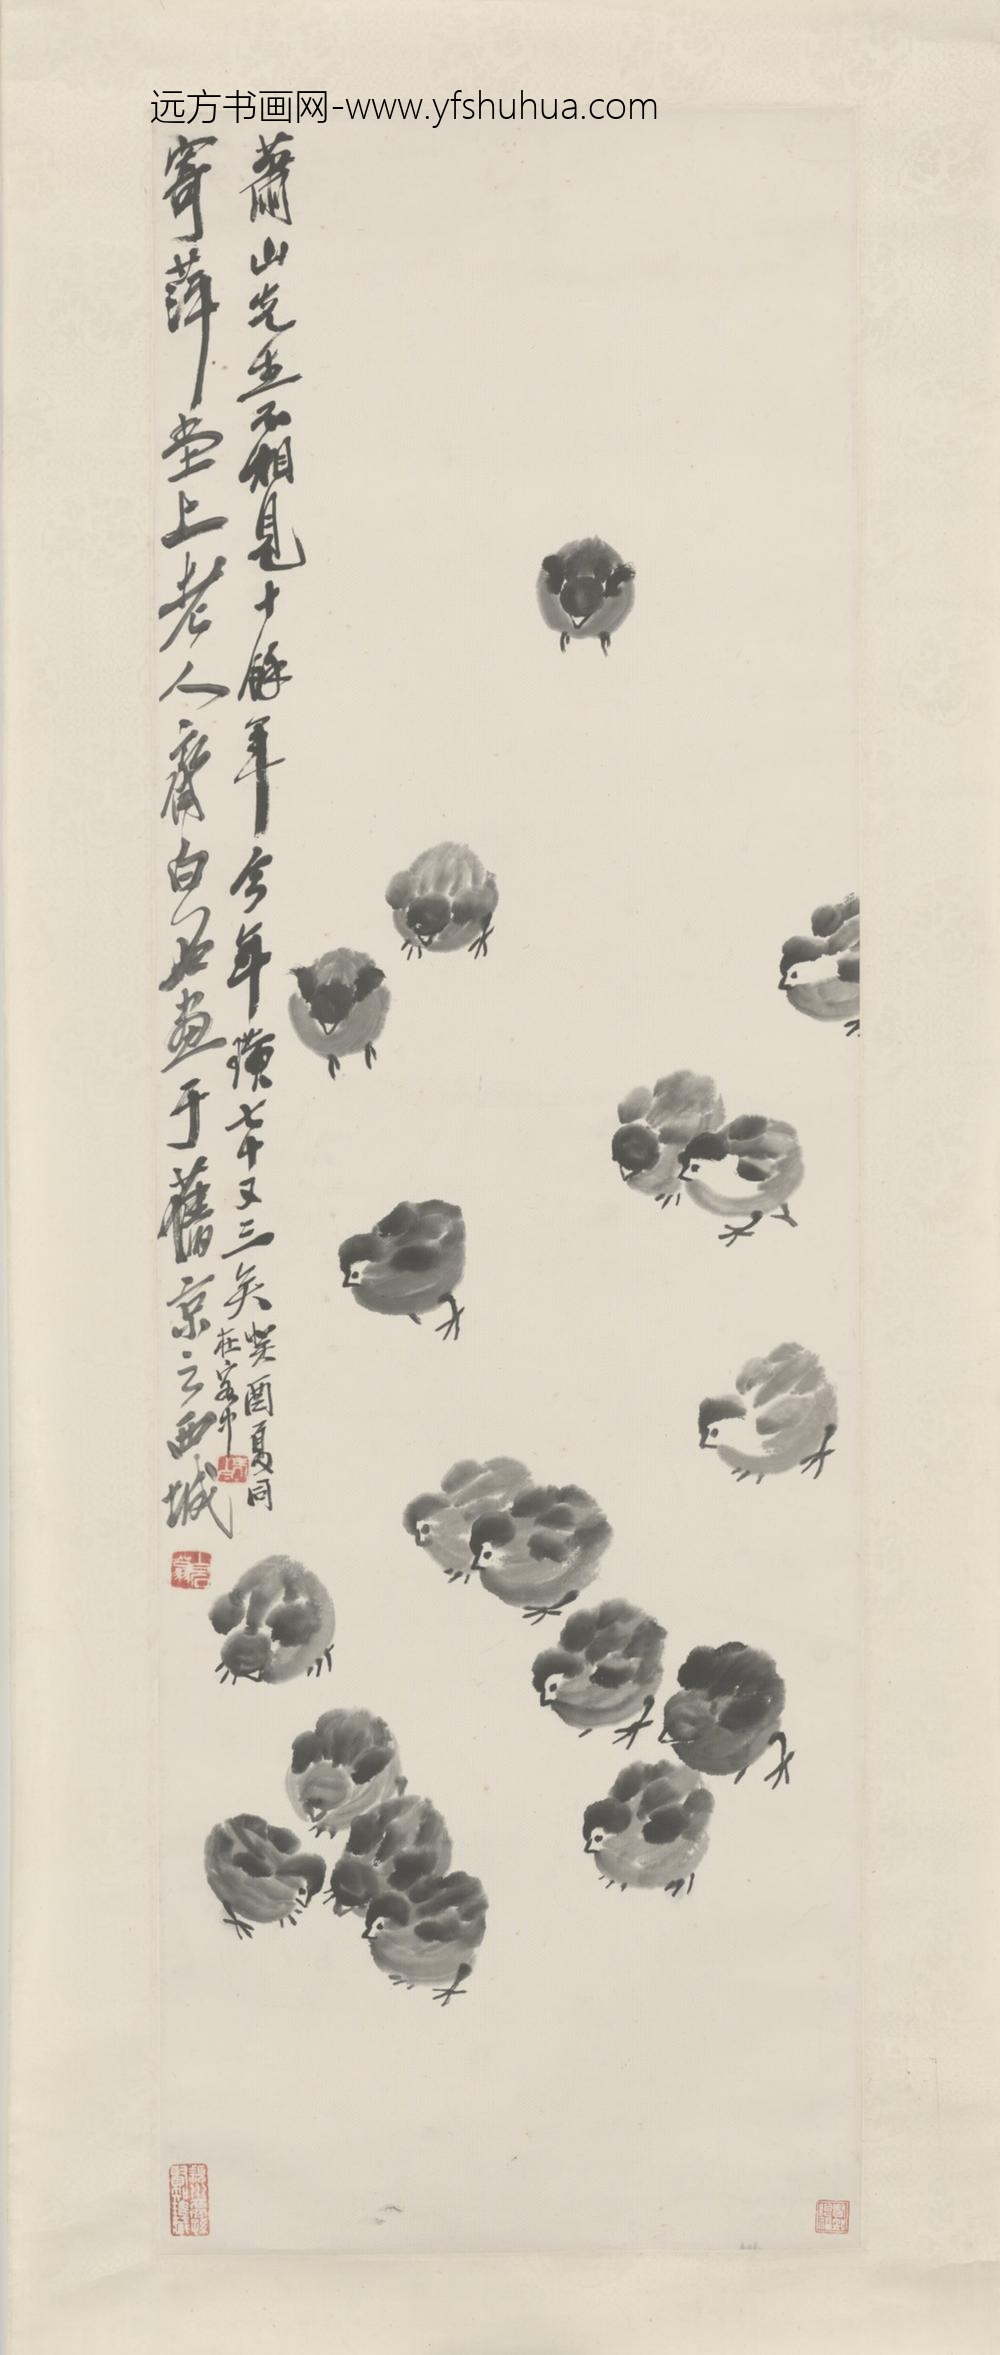 远方书画网-www.yfshuhua.com
寄萍堂上老人齊白石畫于舊京之西城
蕭山先生不相見十餘年今年璜七十又三矣
癸酉夏同
在客中